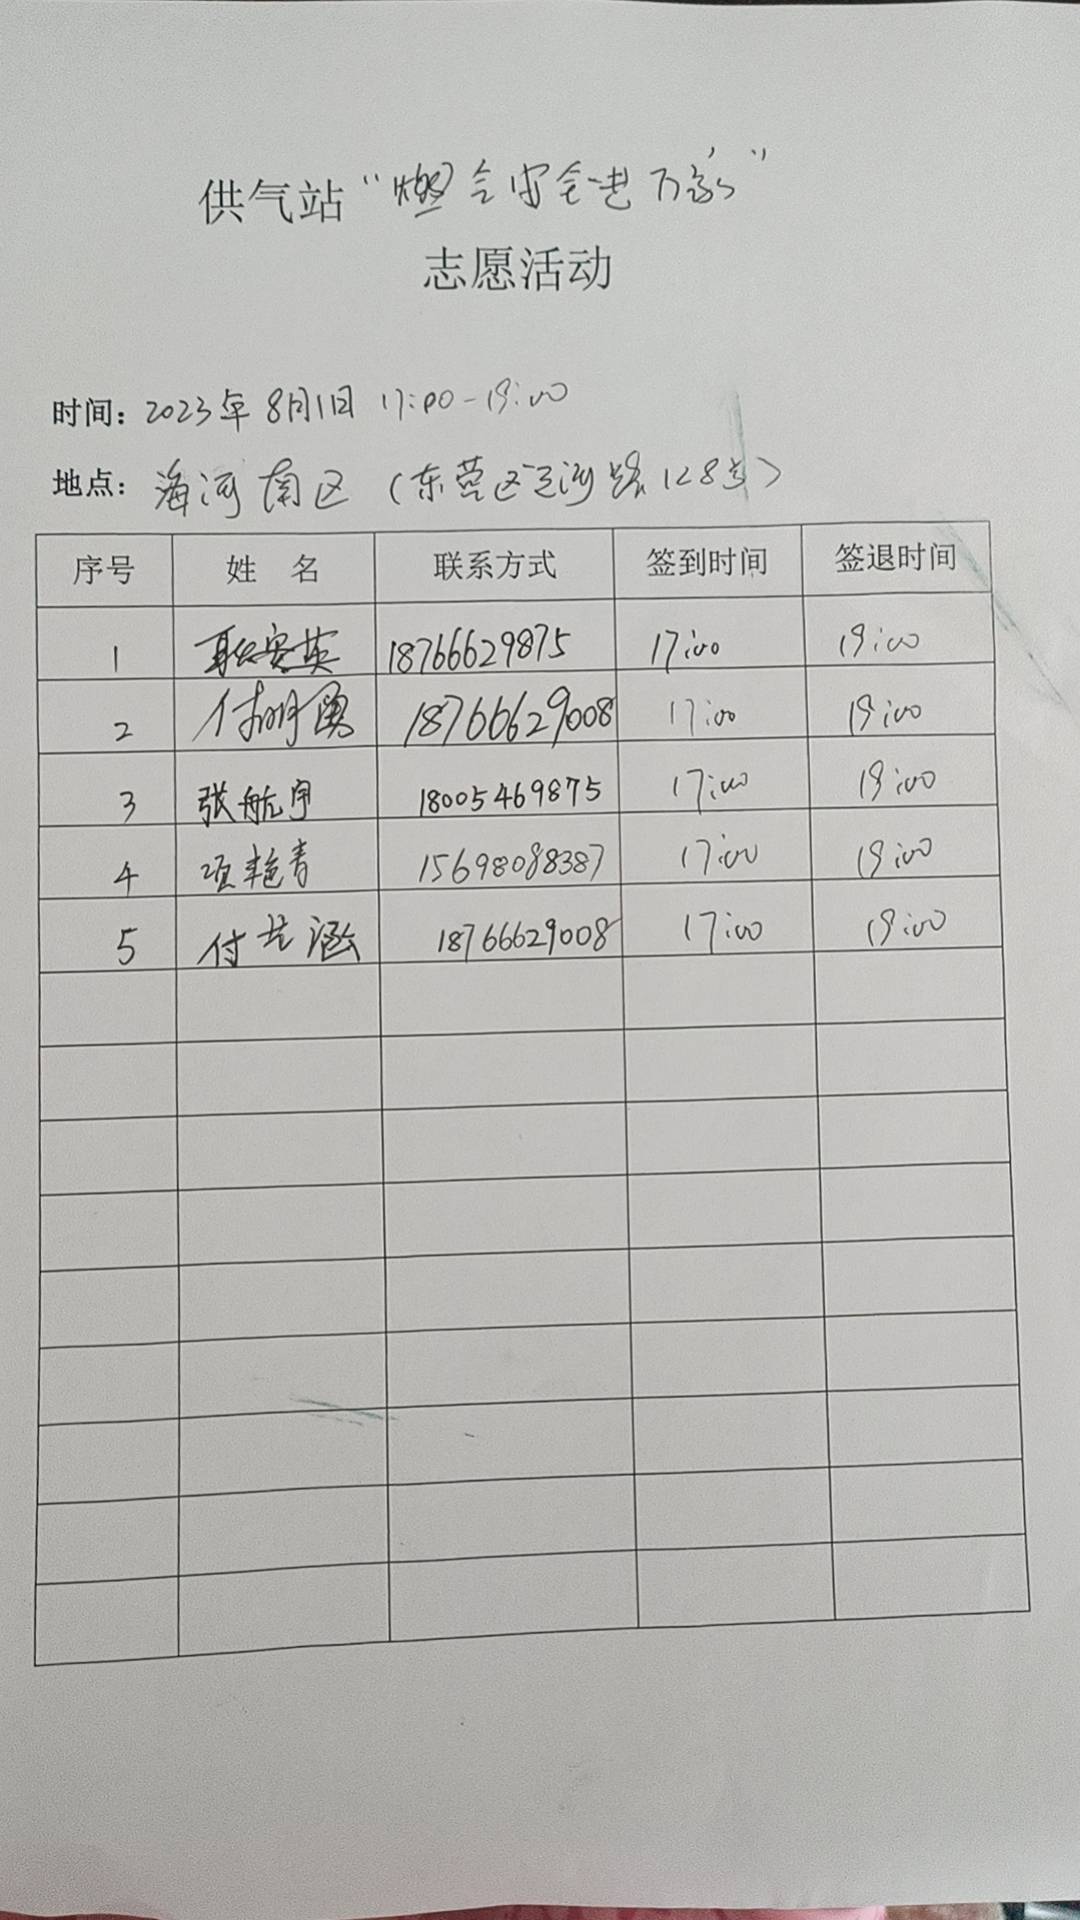 供气站“燃气安全进万家”
志愿活动
时间: 2023年8月1日 17:00-19:00
地点: 海河南区(东营区运河路128号)
序号 姓名 联系方式 签到时间 签退时间
1 耿安英 18766629875 17:00 19:00
2 付明勇 18766629008 17:00 19:00
3 张航宇 18005469875 17:00 19:00
4 项艳青 15698088387 17:00 19:00
5 付艺涵 18766629008 17:00 19:00